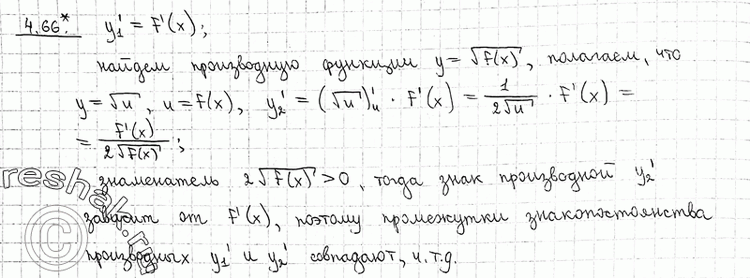 4.66*. y₁' = F'(x);
найдем производную функции y = √F(x), полагаем, что
y = √u, u = F(x), y₂' = (√u)'ᵤ · F'(x) = 1/(2√u) · F'(x) =
= F'(x)/(2√F(x));
знаменатель 2√F(x) > 0, тогда знак производной y₂'
зависит от F'(x), поэтому промежутки знакопостоянства
производных y₁' и y₂' совпадают, ч.т.д.
reshak.ru
©